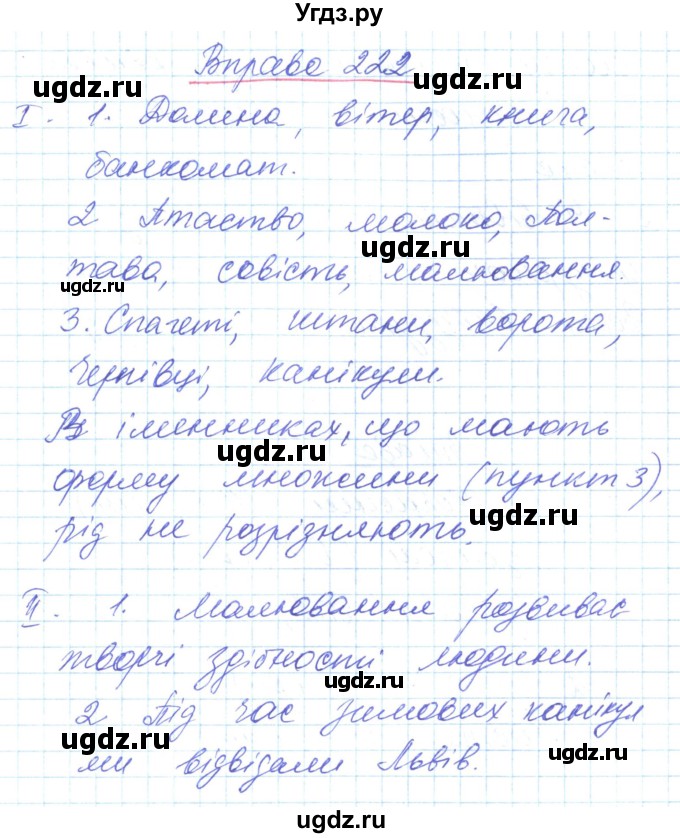 Угдз.ру
Вправа 222
ugdz.ru
ugdz.ru
I. 1. Долина, вітер, книга,
банкомат.
2 Птаство, молоко, Пол-
ugdz.ru
тава, совість, малювання.
ugdz.ru
3. Спагеті, штани, ворота,
Чернівці, канікули.
В іменниках, що мають
ugdz.ru
форму множини (пункт 3),
ugdz.ru
рід не розрізняють.
II. 1. Малювання розвиває
творчі здібності людини.
ugdz.ru
2 Під час зимових канікул
ugdz.ru
ugdz.ru
ми відвідали Львів.